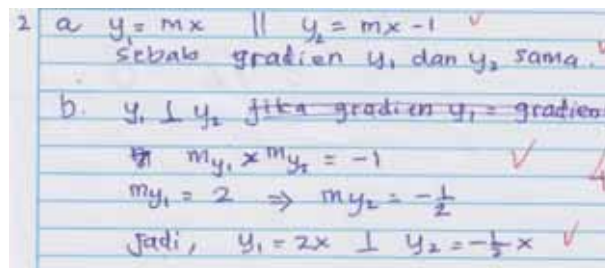 2 a y₁ = mx || y₂ = mx - 1
sebab gradien y₁ dan y₂ sama.
b. y₁ ⊥ y₂ jika gradien y₁ = gradien
m y₁ × m y₂ = -1
m y₁ = 2 ⇒ m y₂ = -1/2
Jadi, y₁ = 2x ⊥ y₂ = -1/2 x